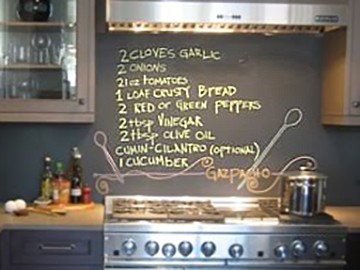 2 CLOVES GARLIC
2 ONIONS
21 oz tomatoes
1 LOAF CRUSTY BREAD
2 RED or GREEN PEPPERS
2 tbsp VINEGAR
2 tbsp OLIVE OIL
CUMIN-CILANTRO (OPTIONAL)
1 CUCUMBER
GAZPACHO